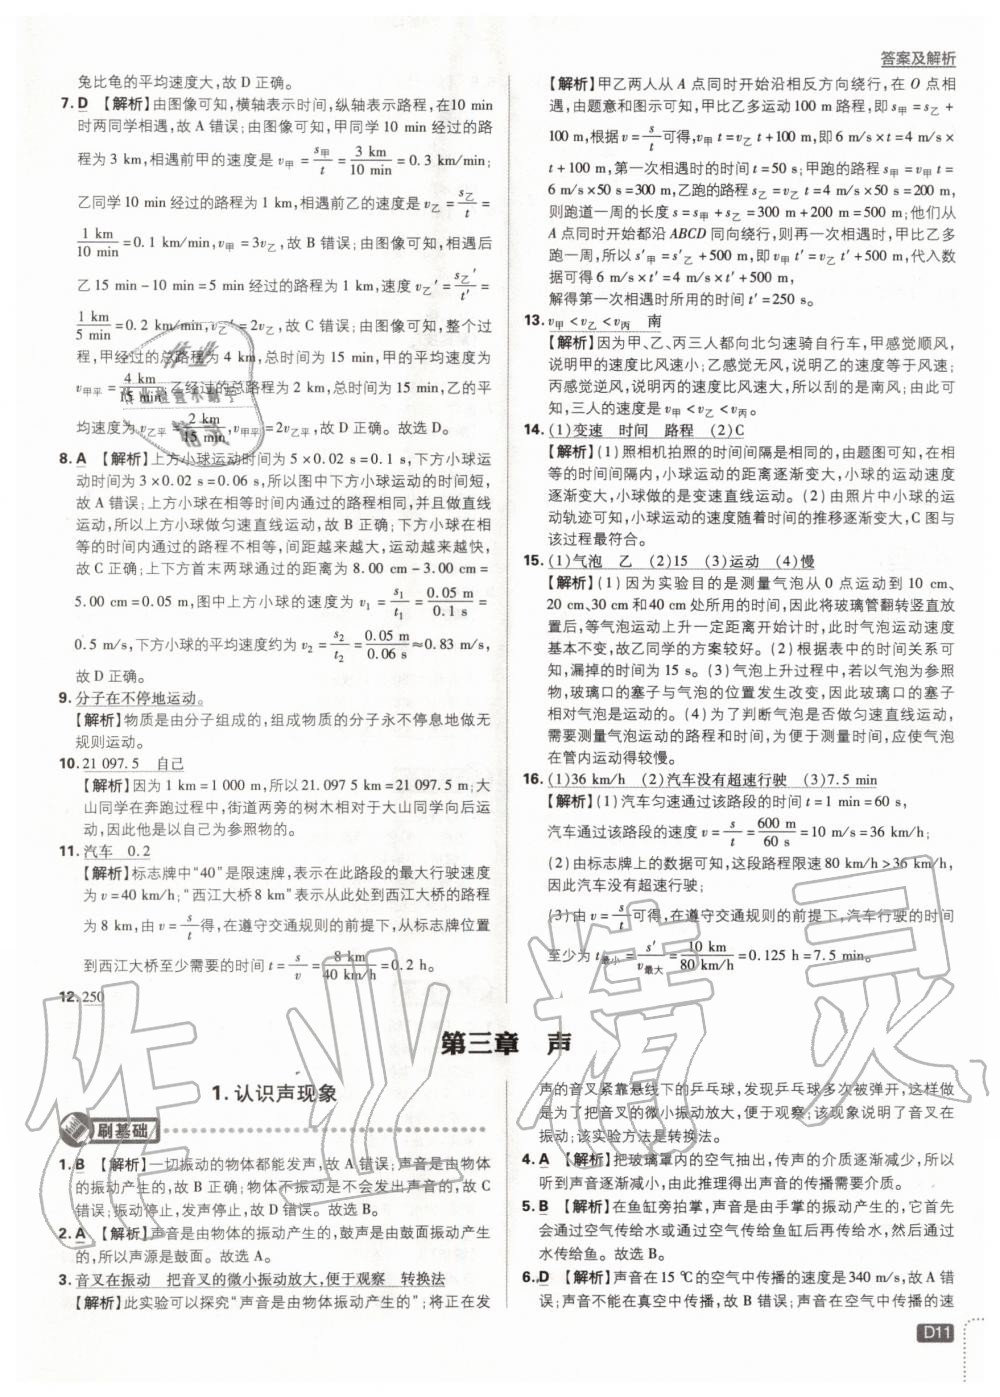 答案及解析
兔比龟的平均速度大,故 D 正确。
7. D 【解析】由图像可知,横轴表示时间,纵轴表示路程,在10 min
时两同学相遇,故 A 错误;由图像可知,甲同学10 min 经过的路
程为 3 km,相遇前甲的速度是 v甲 = s甲/t = 3 km/10 min = 0. 3 km/min;
乙同学10 min 经过的路程为 1 km,相遇前乙的速度是 v乙 = s乙/t =
1 km/10 min = 0. 1 km/min,v甲 = 3v乙,故 B 错误;由图像可知,相遇后
乙 15 min - 10 min = 5 min 经过的路程为 1 km,速度 v乙′ = s乙′/t′ =
1 km/5 min = 0. 2 km/min,v乙′ = 2v乙,故 C 错误;由图像可知,整个过
程,甲经过的总路程为 4 km,总时间为 15 min,甲的平均速度为
v甲平 = 4 km/15 min,乙经过的总路程为 2 km,总时间为 15 min,乙的平
均速度为 v乙平 = 2 km/15 min,v甲平 = 2v乙平,故 D 正确。故选 D。
8. A 【解析】上方小球运动时间为 5 × 0. 02 s = 0. 1 s,下方小球运
动时间为 3 × 0. 02 s = 0. 06 s,所以图中下方小球运动的时间短,
故 A 错误;上方小球在相等时间内通过的路程相同,并且做直线
运动,所以上方小球做匀速直线运动,故 B 正确;下方小球在相
等的时间内通过的路程不相等,间距越来越大,运动越来越快,
故 C 正确;上下方首末两球通过的距离为 8. 00 cm - 3. 00 cm =
5. 00 cm = 0. 05 m,图中上方小球的速度为 v₁ = s₁/t₁ = 0. 05 m/0. 1 s =
0. 5 m/s,下方小球的平均速度约为 v₂ = s₂/t₂ = 0. 05 m/0. 06 s ≈ 0. 83 m/s,
故 D 正确。故选 A。
9. 分子在不停地运动。
【解析】物质是由分子组成的,组成物质的分子永不停息地做无
规则运动。
10. 21 097. 5 自己
【解析】因为 1 km = 1 000 m,所以21. 097 5 km = 21 097. 5 m;大
山同学在奔跑过程中,街道两旁的树木相对于大山同学向后运
动,因此他是以自己为参照物的。
11. 汽车 0. 2
【解析】标志牌中“40”是限速牌,表示在此路段的最大行驶速度
为 v = 40 km/h;“西江大桥8 km”表示从此处到西江大桥的路程
为8 km,由 v = s/t 得,在遵守交通规则的前提下,从标志牌位置
到西江大桥至少需要的时间 t = s/v = 8 km/40 km/h = 0. 2 h。
12. 250
【解析】甲乙两人从 A 点同时开始沿相反方向绕行,在 O 点相
遇,由题意和图示可知,甲比乙多运动100 m 路程,即 s甲 = s乙 +
100 m,根据 v = s/t 可得,v甲 t = v乙 t + 100 m,即 6 m/s × t = 4 m/s ×
t + 100 m,第一次相遇时的时间 t = 50 s;甲跑的路程 s甲 = v甲 t =
6 m/s × 50 s = 300 m,乙跑的路程 s乙 = v乙 t = 4 m/s × 50 s = 200 m,
则跑道一周的长度 s = s甲 + s乙 = 300 m + 200 m = 500 m;他们从
A 点同时开始都沿 ABCD 同向绕行,则再一次相遇时,甲比乙多
跑一周,所以 s′甲 = s′乙 + 500 m,即 v甲 t′ = v乙 t′ + 500 m,代入数
据可得 6 m/s × t′ = 4 m/s × t′ + 500 m,
解得第一次相遇时所用的时间 t′ = 250 s。
13. v甲 < v乙 < v丙 南
【解析】因为甲、乙、丙三人都向北匀速骑自行车,甲感觉顺风,
说明甲的速度比风速小;乙感觉无风,说明乙的速度等于风速;
丙感觉逆风,说明丙的速度比风速大,所以刮的是南风;由此可
知,三人的速度是 v甲 < v乙 < v丙。
14. (1)变速 时间 路程 (2)C
【解析】(1)照相机拍照的时间间隔是相同的,由题图可知,在相
等的时间间隔内,小球运动的距离逐渐变大,小球的运动速度
逐渐变大,小球做的是变速直线运动。(2)由照片中小球的运
动轨迹可知,小球运动的速度随着时间的推移逐渐变大,C 图与
该过程最符合。
15. (1)气泡 乙 (2)15 (3)运动 (4)慢
【解析】(1)因为实验目的是测量气泡从 0 点运动到 10 cm、
20 cm、30 cm 和40 cm 处所用的时间,因此将玻璃管翻转竖直放
置后,等气泡运动上升一定距离开始计时,此时气泡运动速度
基本不变,故乙同学的方案较好。(2)根据表中的时间关系可
知,漏掉的时间为 15 s。(3)气泡上升过程中,若以气泡为参照
物,玻璃口的塞子与气泡的位置发生改变,因此玻璃口的塞子
相对气泡是运动的。(4)为了判断气泡是否做匀速直线运动,
需要测量气泡运动的路程和时间,为便于测量时间,应使气泡
在管内运动得较慢。
16. (1)36 km/h (2)汽车没有超速行驶 (3)7. 5 min
【解析】(1)汽车匀速通过该路段的时间 t = 1 min = 60 s,
汽车通过该路段的速度 v = s/t = 600 m/60 s = 10 m/s = 36 km/h;
(2)由标志牌上的数据可知,这段路程限速80 km/h > 36 km/h,
因此汽车没有超速行驶;
(3)由 v = s/t 可得,在遵守交通规则的前提下,汽车行驶的时间
至少为 t最小 = s′/v最大 = 10 km/80 km/h = 0. 125 h = 7. 5 min。
第三章 声
1. 认识声现象
刷基础
1. B 【解析】一切振动的物体都能发声,故 A 错误;声音是由物体
的振动产生的,故 B 正确;物体不振动是不会发出声音的,故 C
错误;振动停止,发声停止,故 D 错误。故选 B。
2. A 【解析】声音是由物体的振动产生的,鼓声是由鼓面振动产生
的,所以声源是鼓面。故选 A。
3. 音叉在振动 把音叉的微小振动放大,便于观察 转换法
【解析】此实验可以探究“声音是由物体振动产生的”;将正在发
声的音叉紧靠悬线下的乒乓球,发现乒乓球多次被弹开,这样做
是为了把音叉的微小振动放大,便于观察;该现象说明了音叉在
振动;该实验方法是转换法。
4. A 【解析】把玻璃罩内的空气抽出,传声的介质逐渐减少,所以
听到声音逐渐减弱,由此推理得出声音的传播需要介质。
5. B 【解析】在鱼缸旁拍掌,声音是由手掌的振动产生的,它首先
会通过空气传给水或通过空气传给鱼缸后再传给水,然后通过
水传给鱼。故选 B。
6. D 【解析】声音在15 ℃的空气中传播的速度是340 m/s,故 A 错
误;声音不能在真空中传播,故 B 错误;声音在空气中传播的速
D11
作业精灵
作业
作业检查小助手
精灵